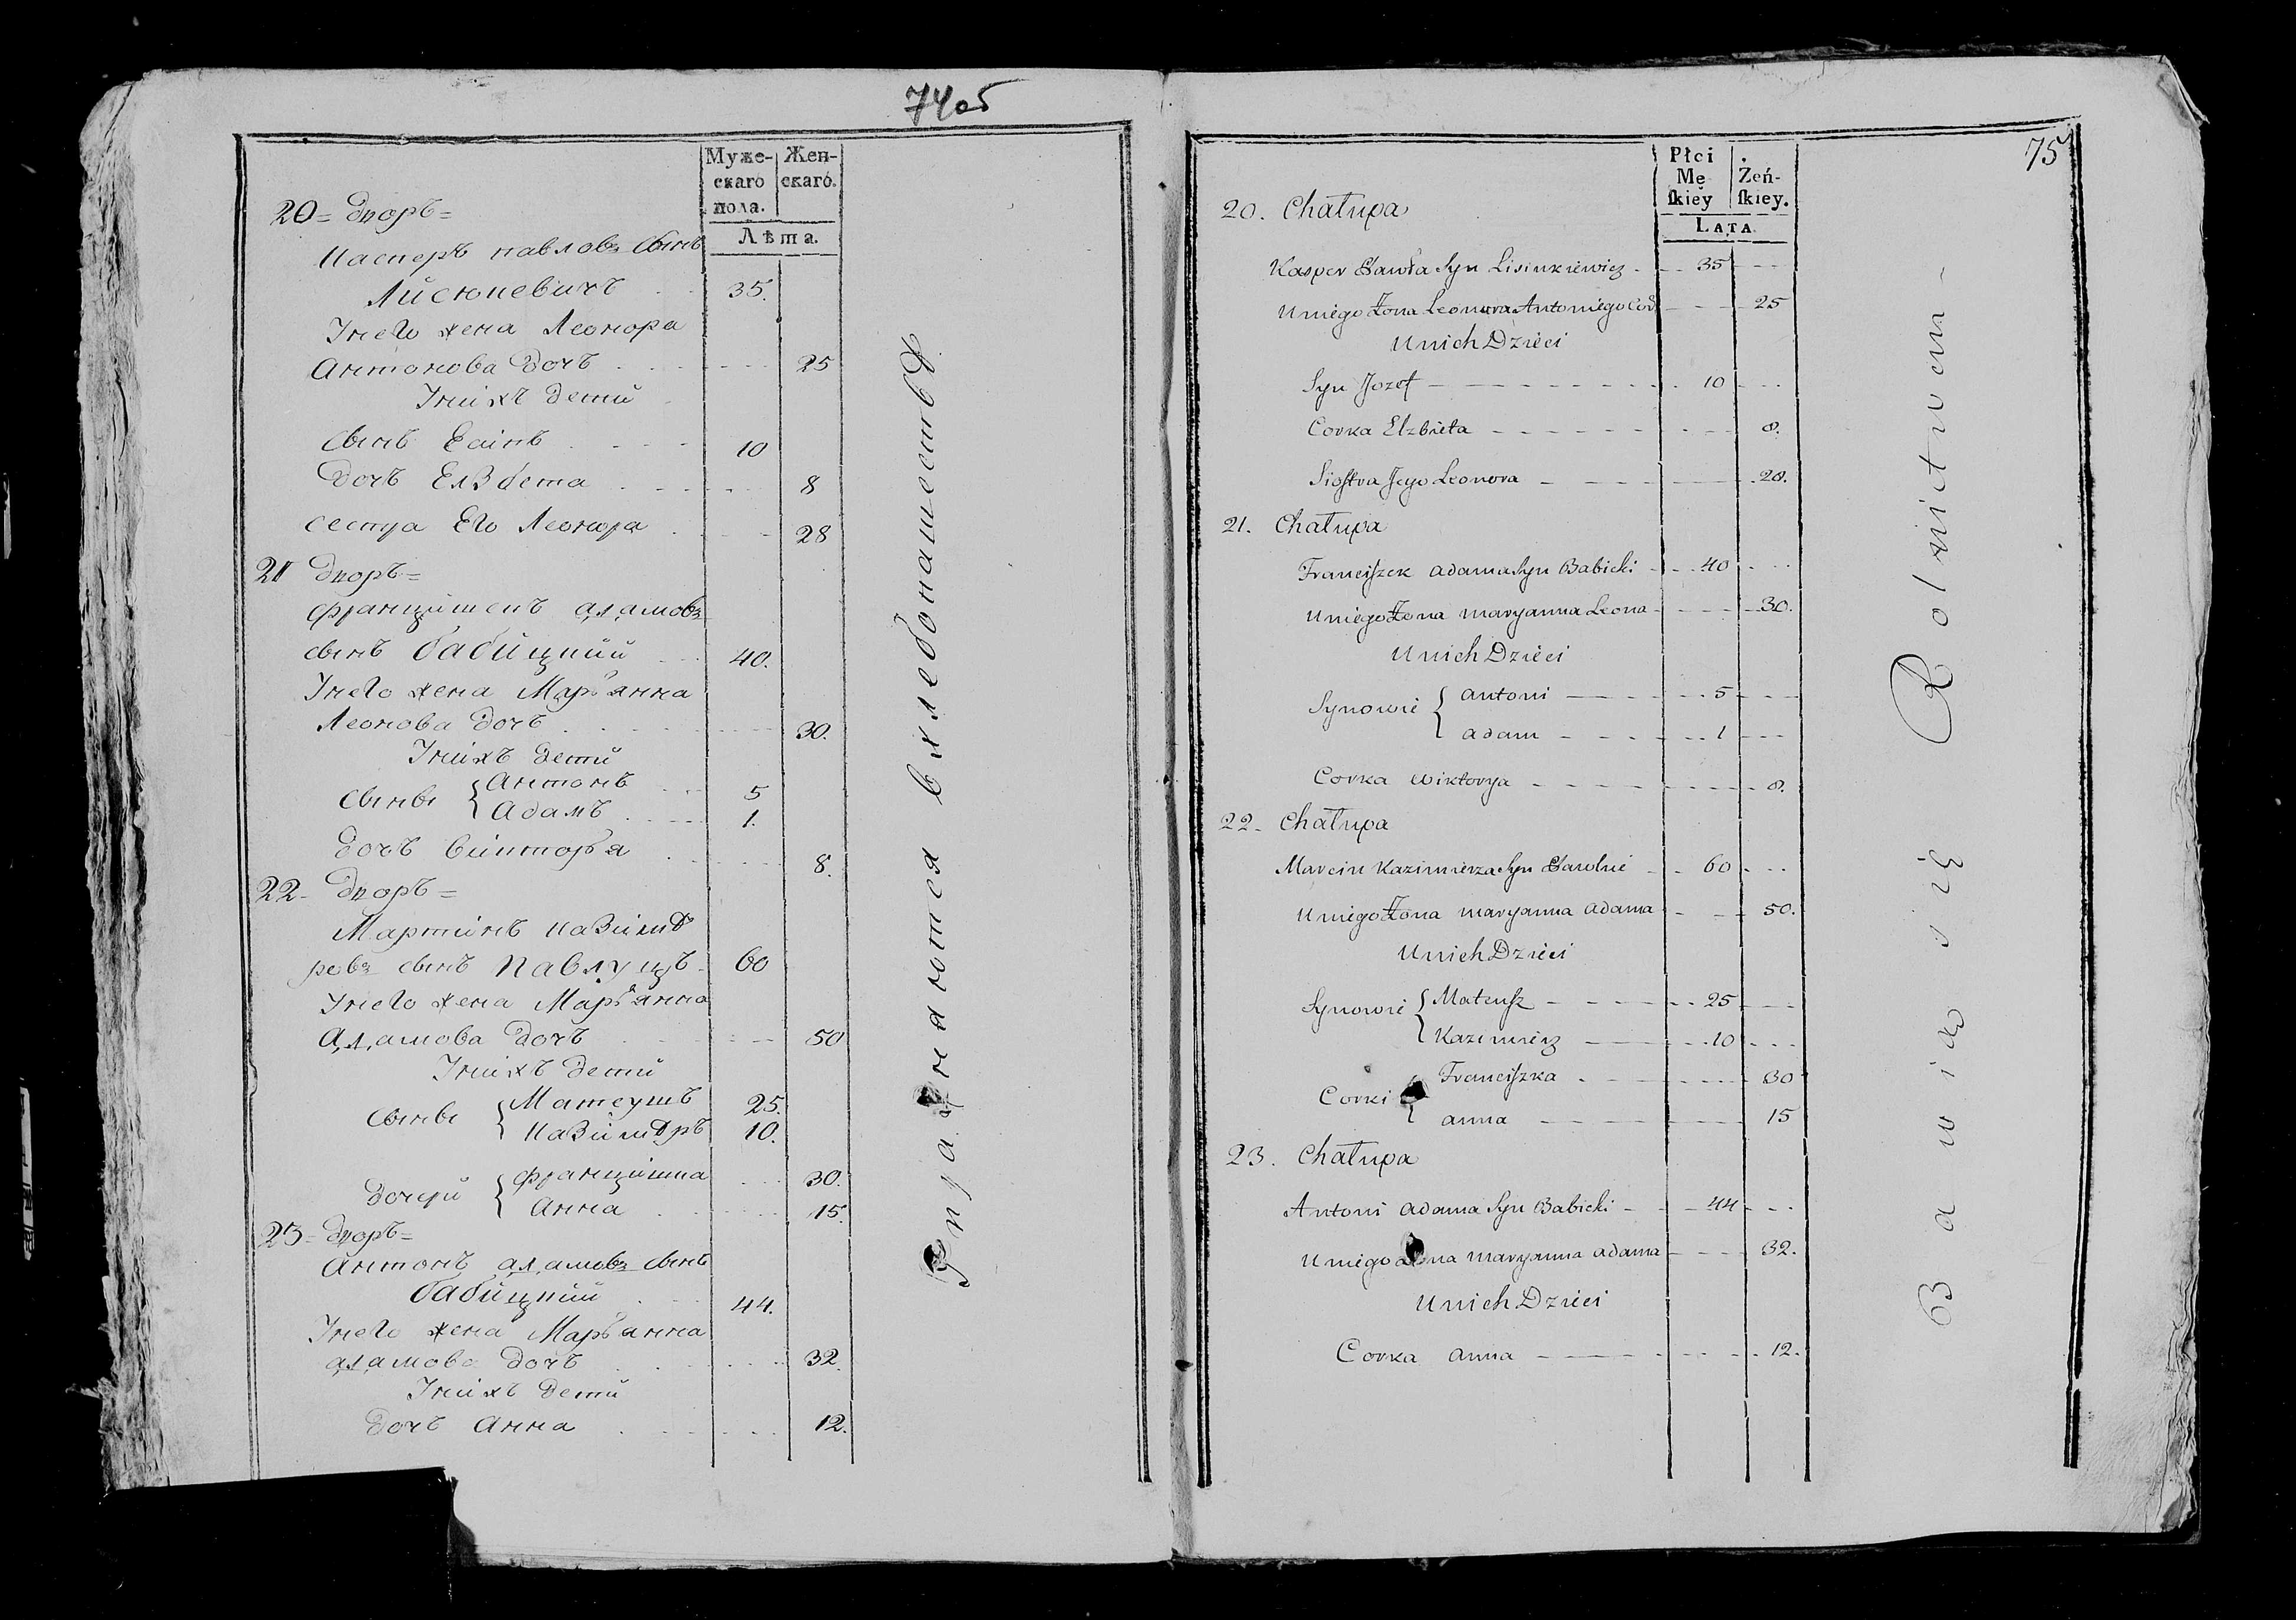 74об
Муже-
скаго
пола.
Жен-
скаго.
Лѣта.
20= дворъ=
Касперъ павловъ сынъ
Лисюкевичъ 35.
Унего жена Леонора
Антонова дочь 25
Унихъ дети
сынъ Есипъ 10
дочь Елзбета 8
сестра Его Леонора 28
21 дворъ=
францишекъ адамовъ
сынъ бабицкий 40.
Унего жена Марьянна
Леонова дочь 30.
Унихъ дети
сыны { Антонъ 5
Адамъ 1.
дочь викторья 8.
22- дворъ=
Мартинъ казимѣ
ровъ сынъ Павлуць 60
Унего жена Марьянна
Адамова дочь 50
Унихъ дети
сыны { Матеушъ 25.
казимѣръ 10.
дочери { францишка 30.
Анна 15.
23= дворъ=
Антонъ адамовъ сынъ
бабицкий 44.
Унего жена Марьянна
адамова дочь 32.
Унихъ дети
дочь Анна 12.
Упражняются вхлебопашестве
75
Płci
Mę
ſkiey
Żeń-
ſkiey.
LATA
20. Chałupa
Kasper Pawła Syn Lisiukiewicz 35
Uniego Żona Leonora Antoniego Cor 25
Unich Dzieci
Syn Jozef 10
Corka Elzbieta 8.
Siostra Jego Leonora 28.
21. Chałupa
Franciszek adama Syn Babicki 40
Uniego Żona maryanna Leona 30.
Unich Dzieci
Synowie { antoni 5
adam 1
Corka wiktorya 8.
22. Chałupa
Marcin Kazimierza Syn 60
Uniego Żona maryanna adama 50.
Unich Dzieci
Synowie { Mateusz 25
Kazimierz 10
Corki { Franciszka 30
anna 15
23. Chałupa
Antoni adama Syn Babicki 44
Uniego Żona maryanna adama 32.
Unich Dzieci
Corka anna 12.
Bawią się Rolnictwem